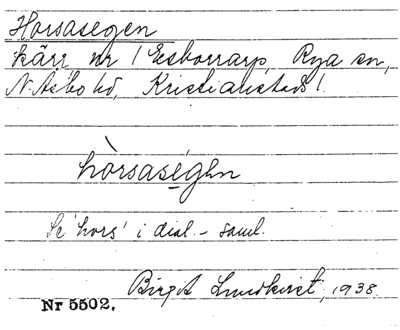 Horsasegen
kärr nr 1 Esborrarp, Rya sn,
N. Åsbo hd, Kristianstads l.
hòrsaségen
Se 'hors' i dial.- saml.
Birgit Lundkvist, 1938
Nr 5502.